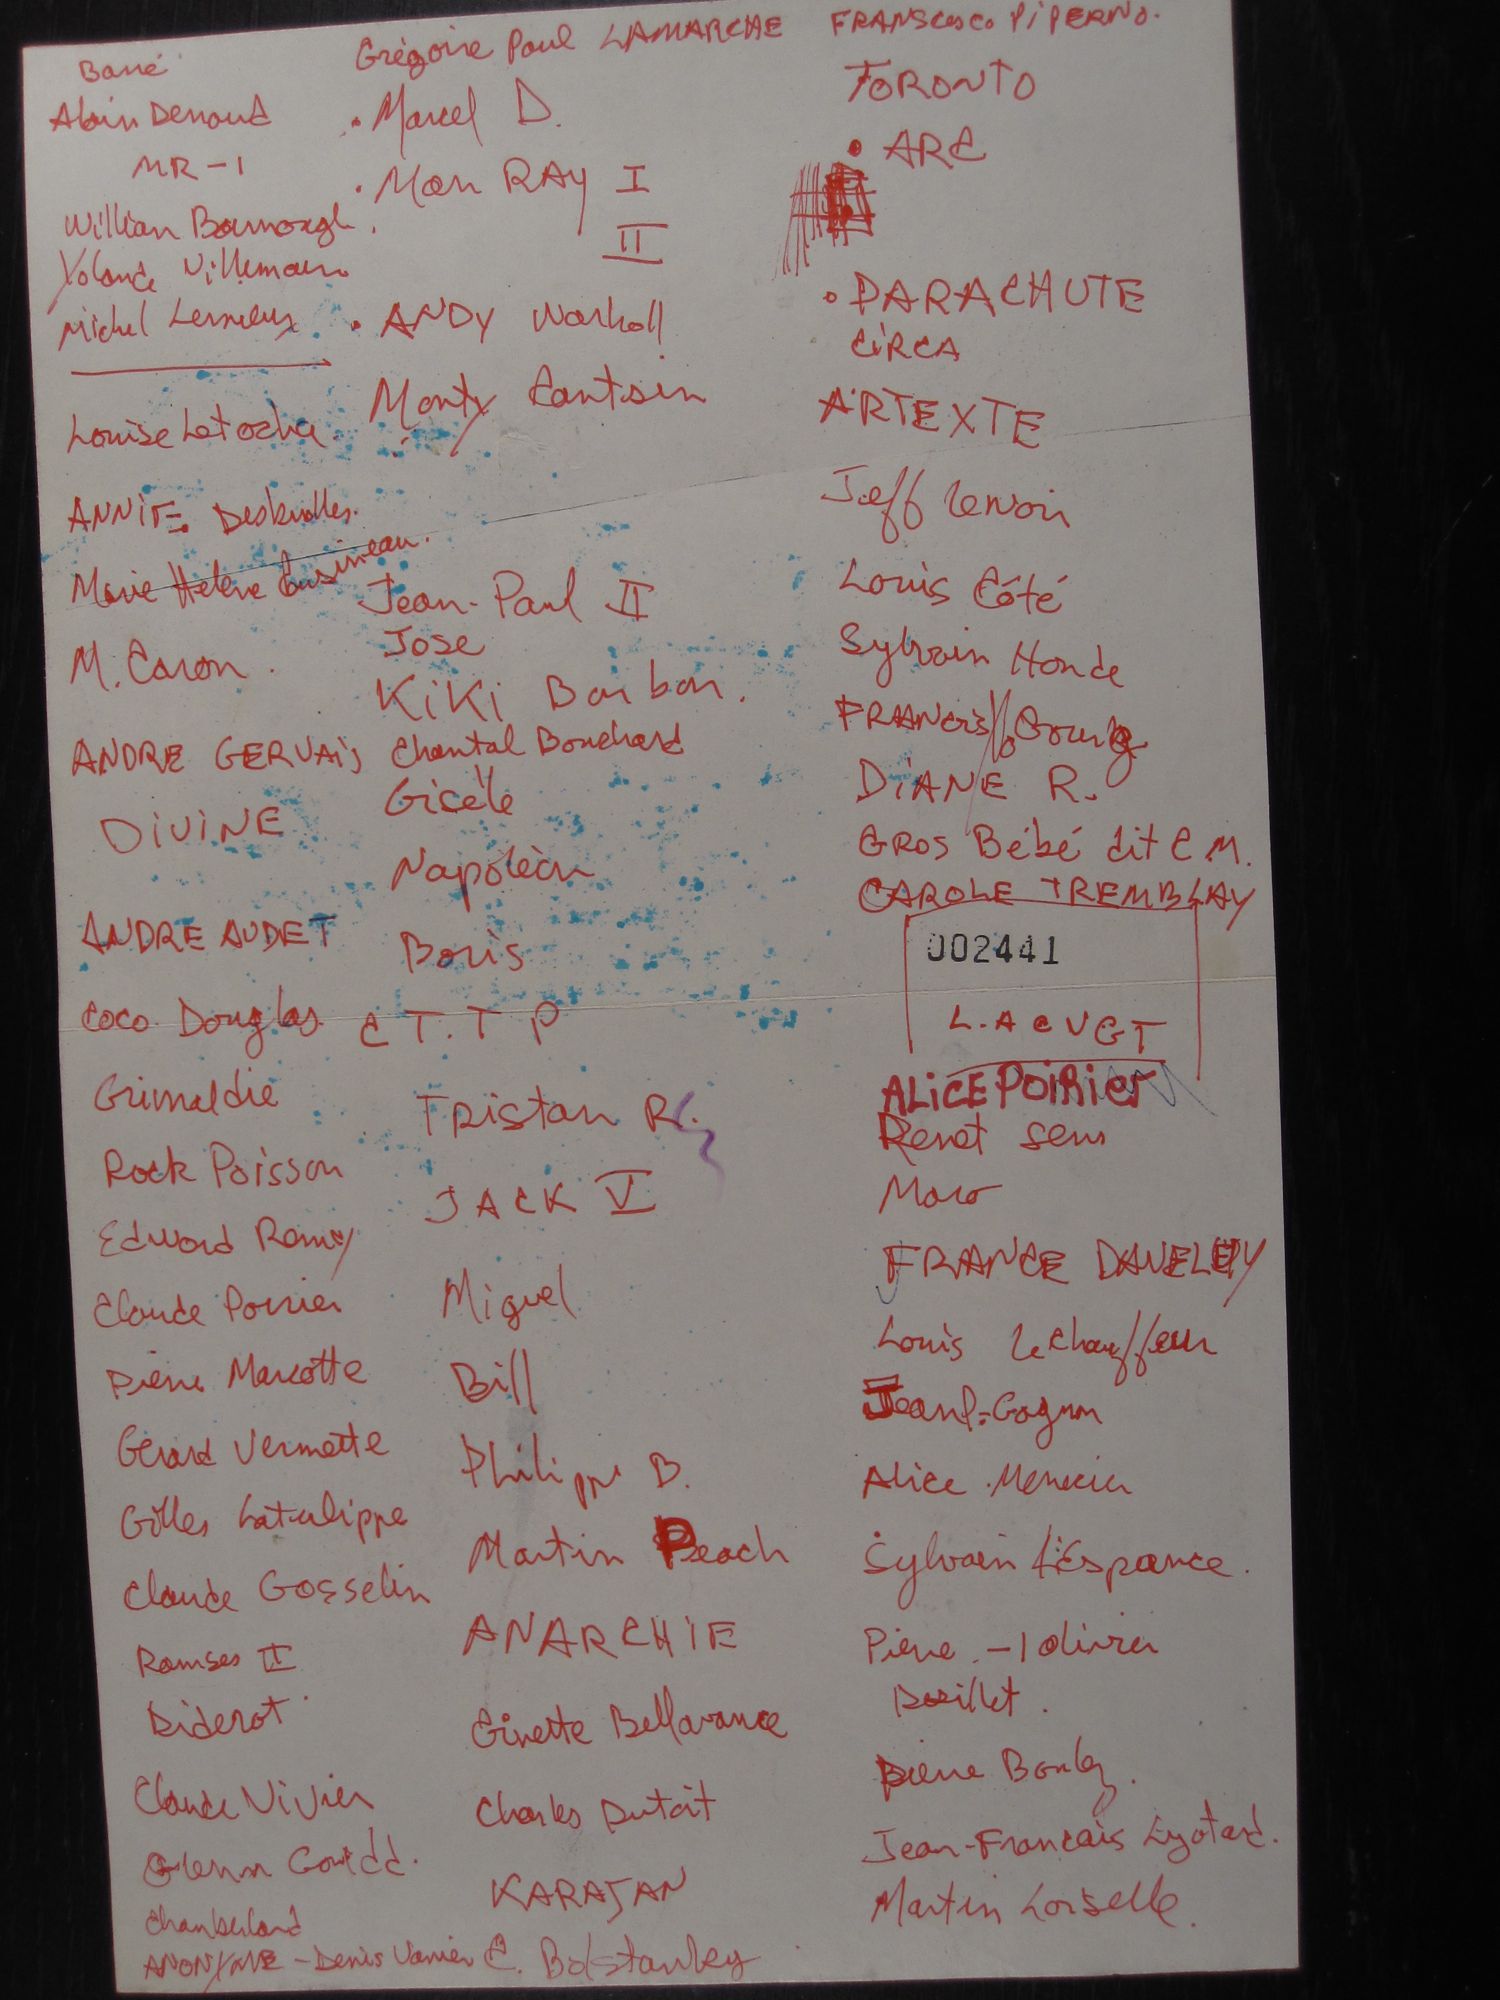 Grégoire Paul LAMARCHE
FRANScesco PiPERNO.
Barré
Alain
MR-1
William
Yolande Villemaire
Michel Lemieux
Louise Latocha
ANNIE
Marie Hélène Cousineau.
M. Caron.
ANDRE GERVAIS
DIVINE
ANDRE AUDET
Coco Douglas
Grimaldie
Rock Poisson
Edward Remy
Claude Poirier
Pierre Marcotte
Gérard Vermette
Gilles Latulippe
Claude Gosselin
Ramses II
Diderot
Claude Vivier
Glenn Gould.
Chamberland
ANONYME - Denis Vanier
Marcel D.
Man RAY I
II
ANDY Warholl
Monty Cantsin
Jean-Paul II
Jose
KiKi Bonbon.
Chantal Bouchard
Gisèle
Napoléon
Boris
C T. T P
Tristan R.
JACK V
Miguel
Bill
Philippe B.
Martin Peach
ANARCHIE
Ginette Bellavance
Charles Dutoit
KARAJAN
C.
TORONTO
ARC
PARACHUTE
CiRCA
ARTEXTE
Jeff Lenoir
Louis Côté
Sylvain Honde
FRANCis
DiANE R.
GROS Bébé dit C M.
CAROLE TREMBLAY
002441
L.ACVGT
ALiCE POiRier
Renot sens
Maro
FRANCE
Louis Le chauffeur
Jean P. Gagnon
Alice
Sylvain L'Espérance.
Pierre -
Pierre Boulez.
Jean-Francais Lyotard.
Martin Loiselle.